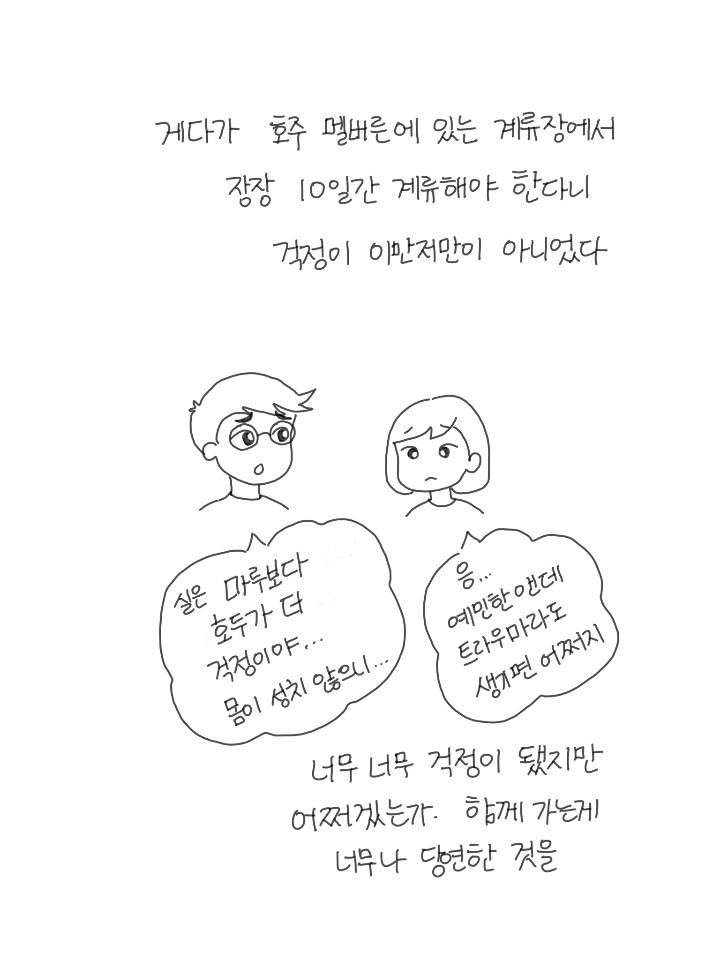 게다가 호주 멜버른에 있는 계류장에서
장장 10일간 계류해야 한다니
걱정이 이만저만이 아니었다
실은 마루보다
호두가 더
걱정이야...
몸이 성치 않으니...
음...
예민한 앤데
트라우마라도
생기면 어쩌지
너무 너무 걱정이 됐지만
어쩌겠는가. 함께 가는게
너무나 당연한 것을